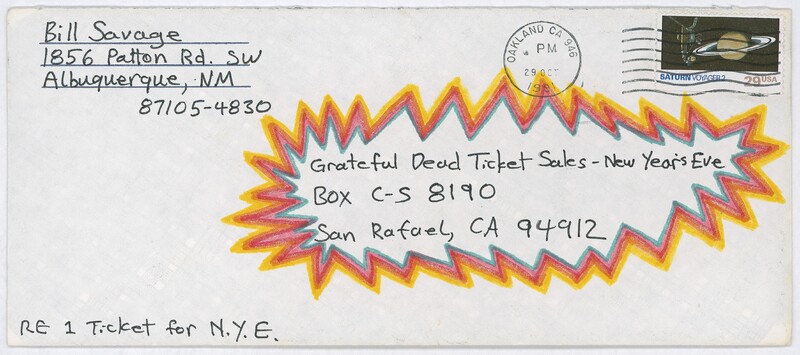 Bill Savage
1856 Patton Rd. SW
Albuquerque, NM
87105-4830
OAKLAND CA 946
PM
29 OCT
1991
SATURN VOYAGER 2
29USA
Grateful Dead Ticket Sales - New Year's Eve
Box C-S 8190
San Rafael, CA 94912
RE 1 Ticket for N.Y.E.